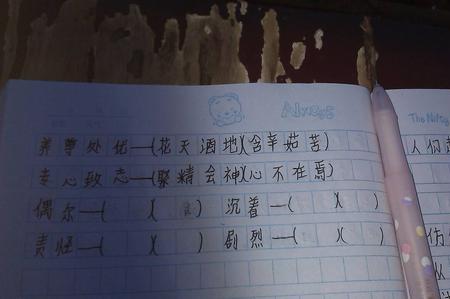 Always
The Nilty
养尊处优—(花天酒地)(含辛茹苦)
专心致志—(聚精会神)(心不在焉)
偶尔—( )( ) 沉着—( )( )
责怪—( )( ) 剧烈—( )( )
人们
伤
从